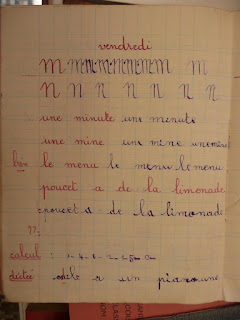 vendredi
m m m m m m m m m
n n n n n n n
une minute une minute
une mine une mine une mine
bien le menu le menu le menu
poucet a de la limonade
poucet a de la limonade
calcul :
dictée un